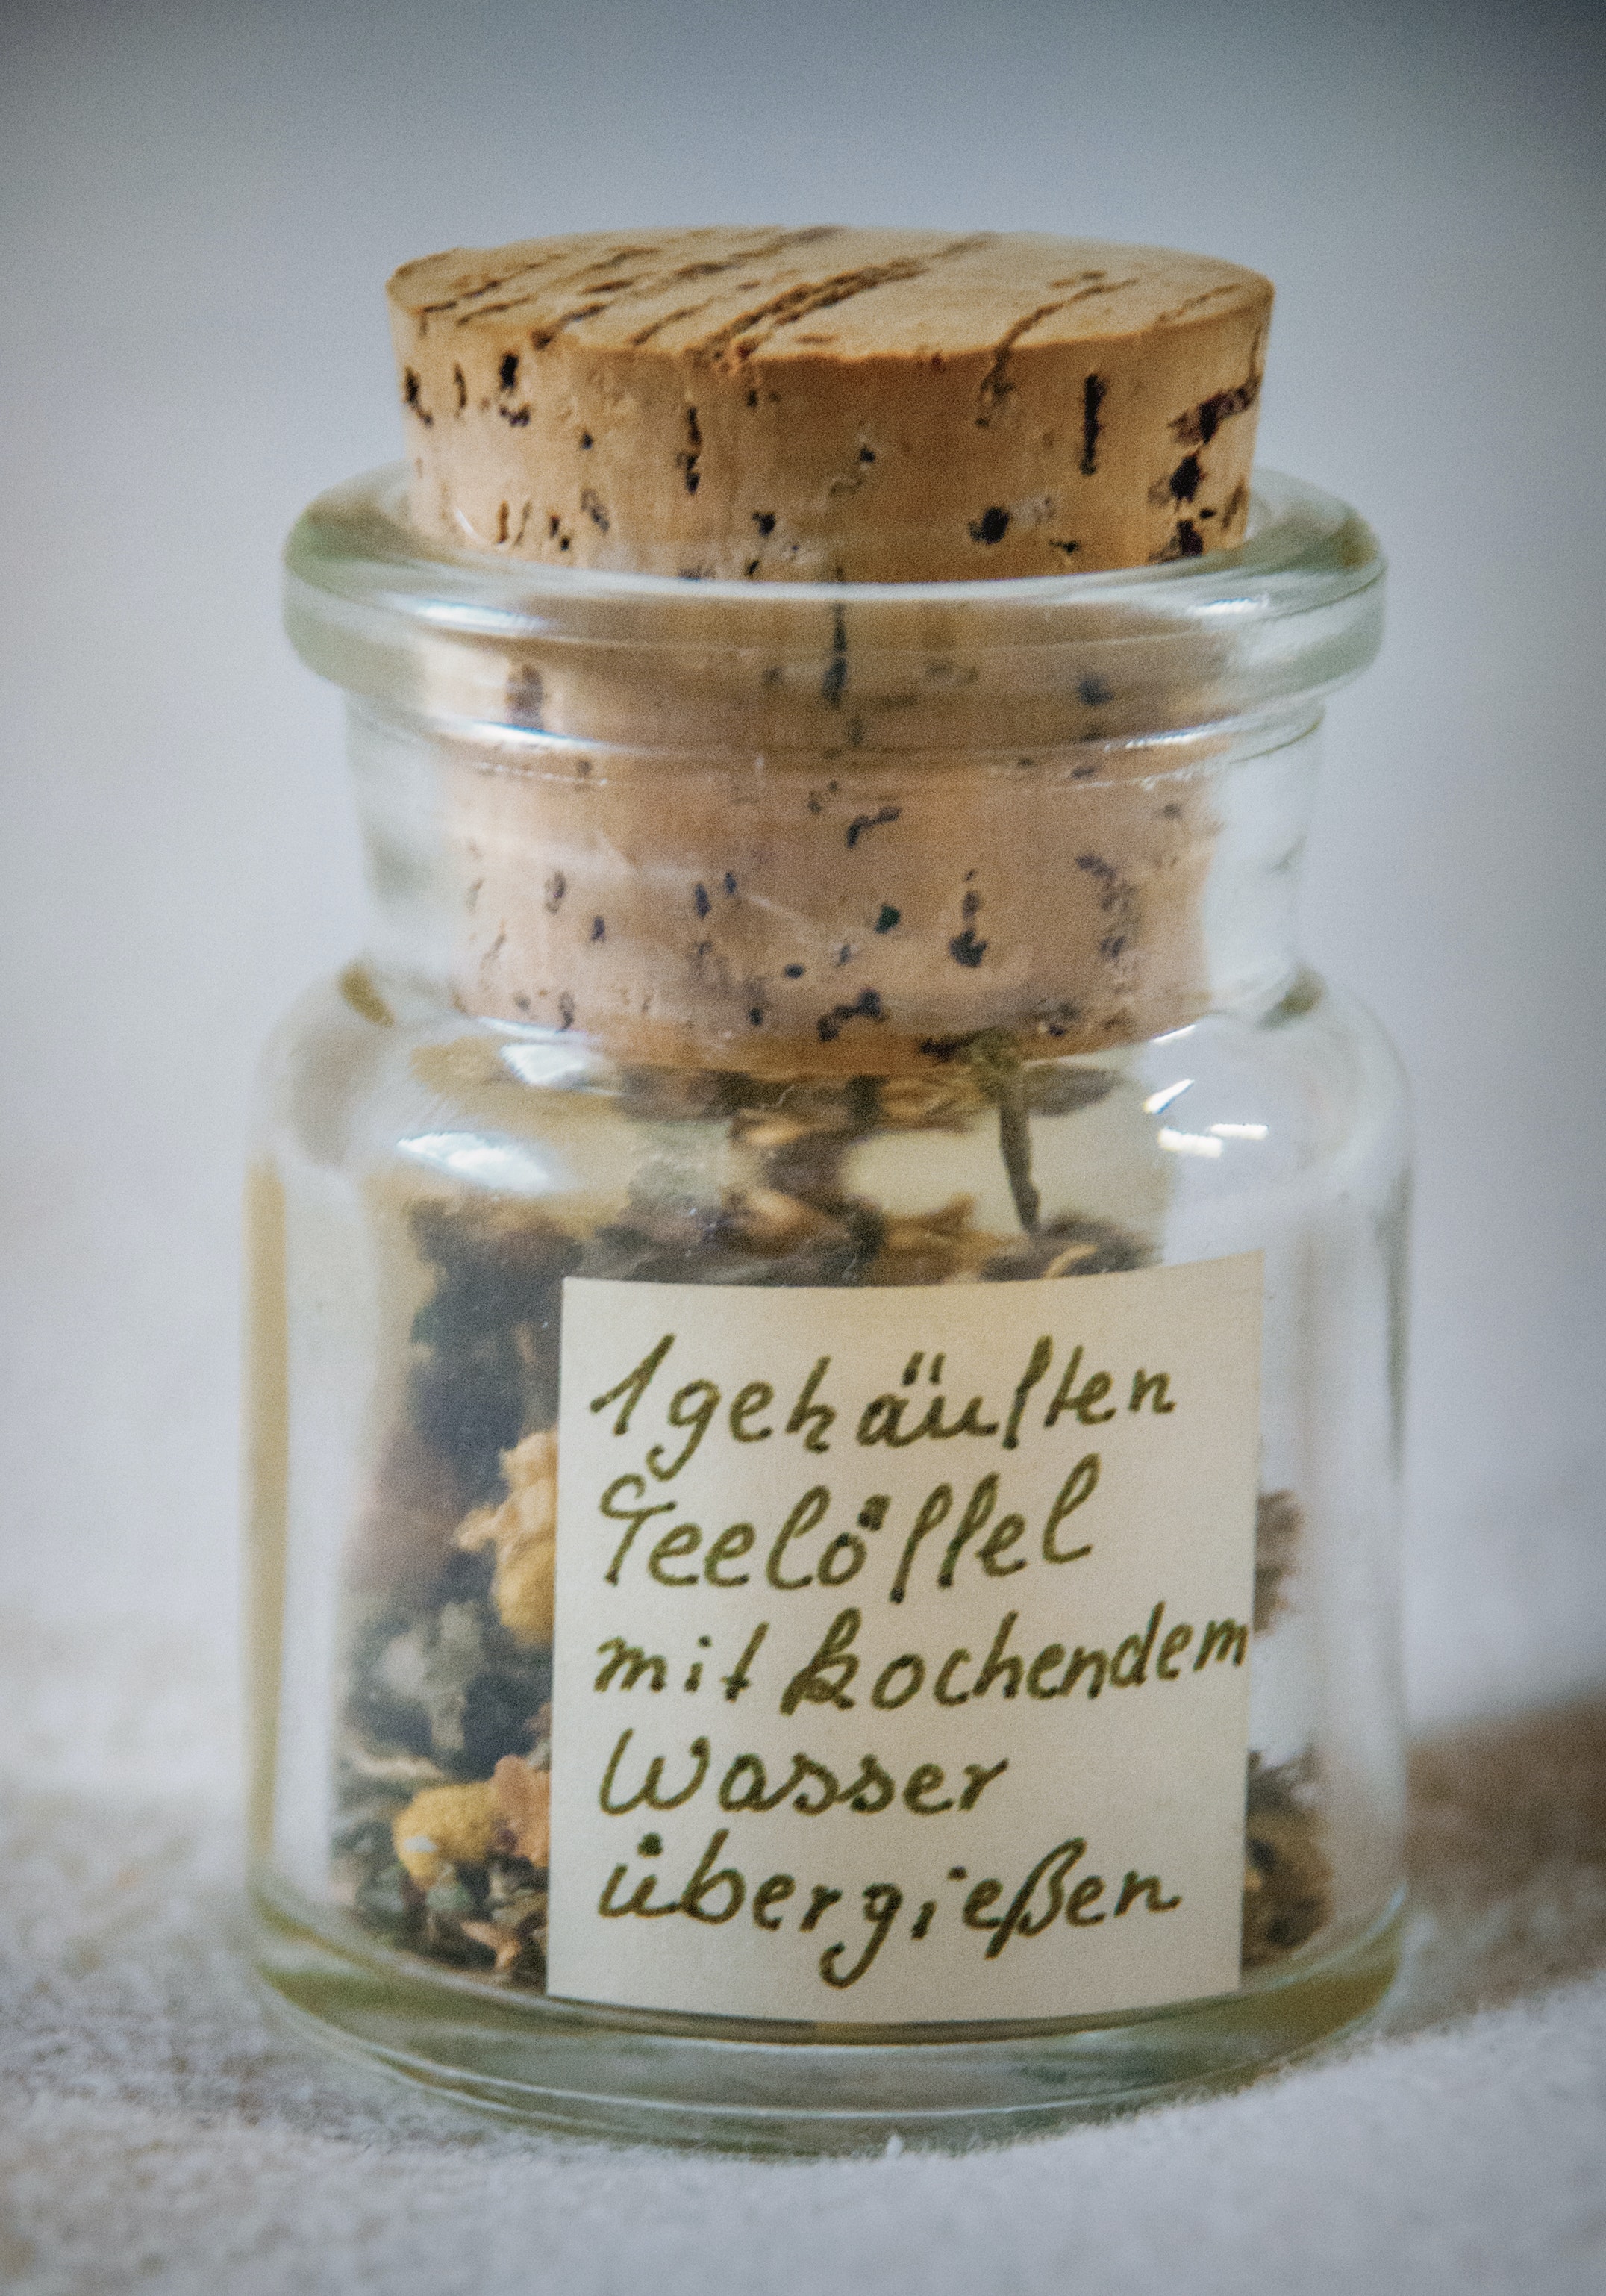 1 gehäuften
Teelöffel
mit kochendem
Wasser
übergießen